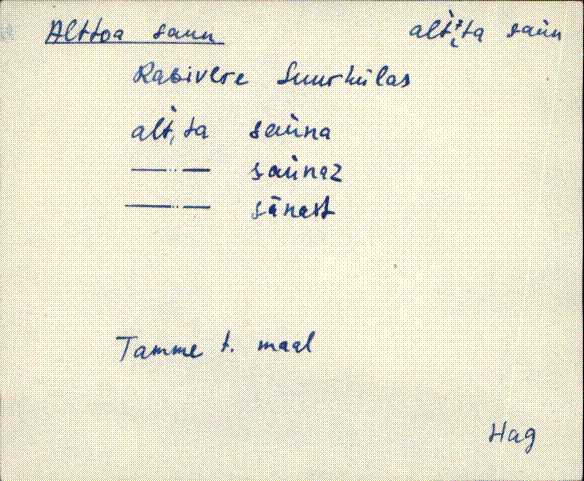 Alttoa saun alt'ta saùn
Rabivere Suurkülas
alt'ta saùna
—..— saùnaz
—..— sānast
Tamme t. maal
Hag